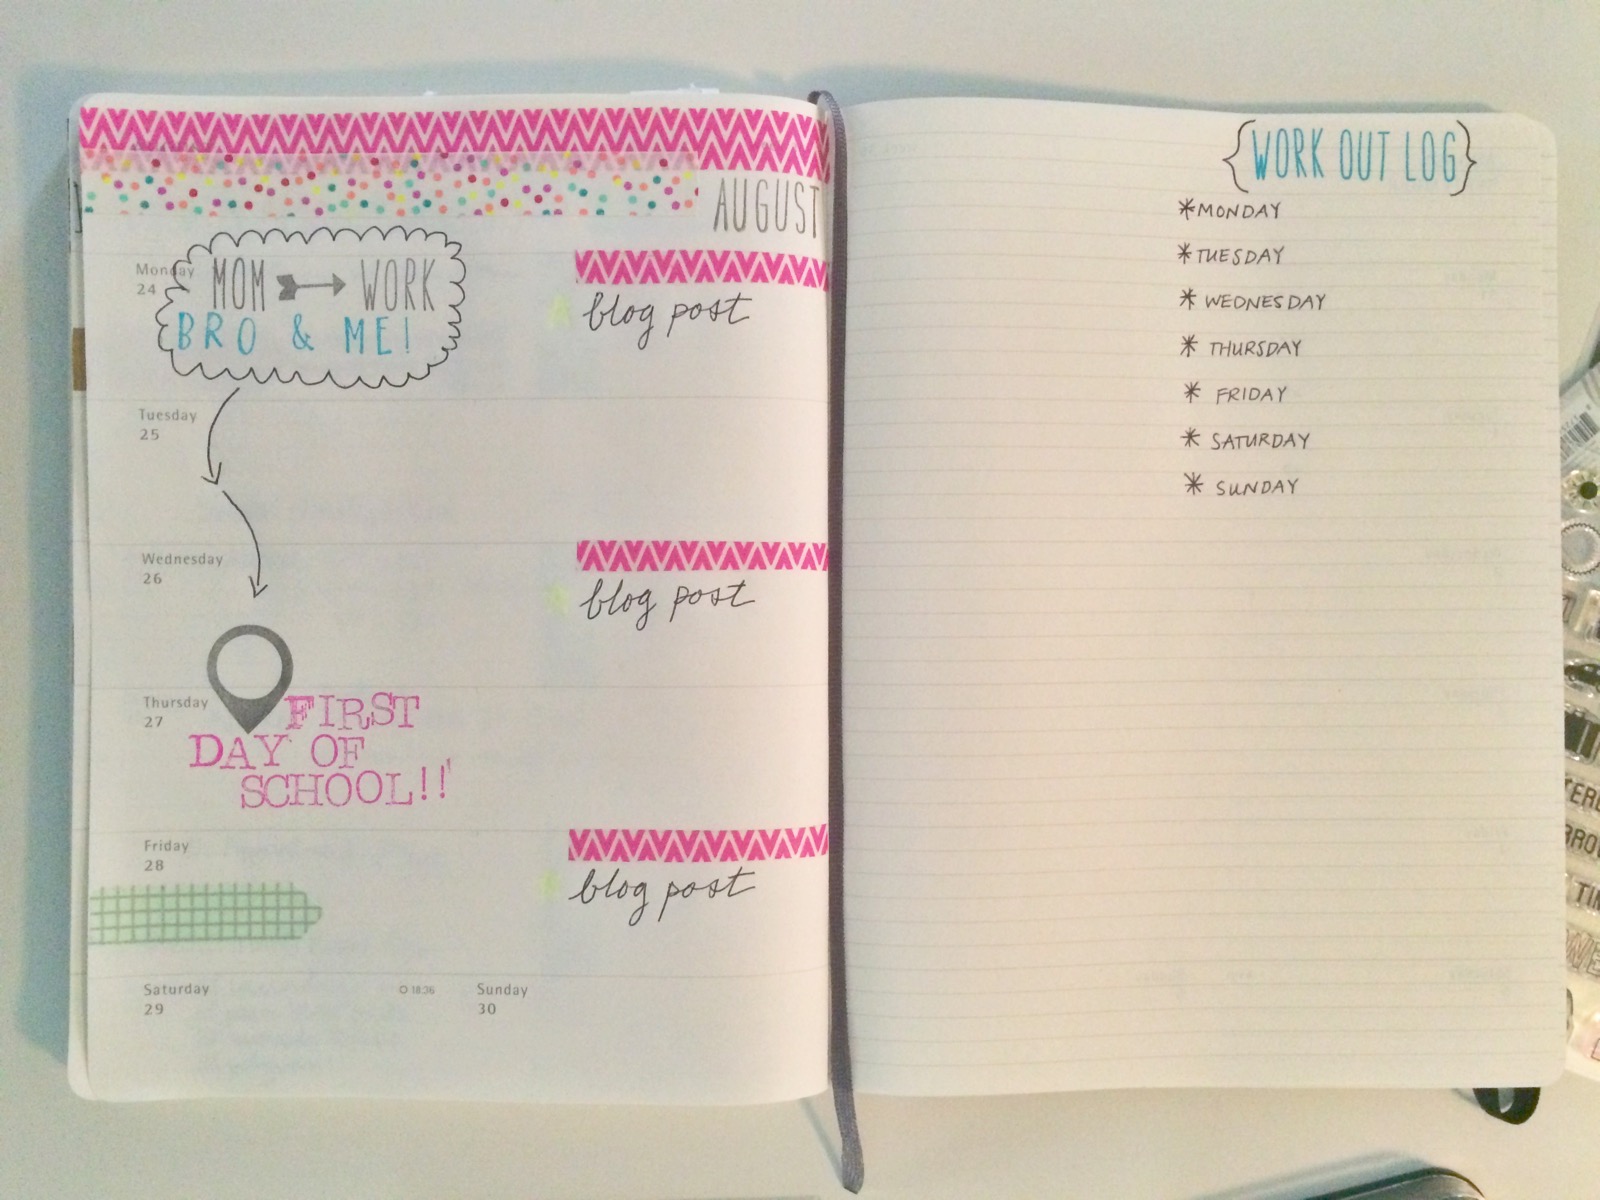 AUGUST
Monday
24
MOM WORK
BRO & ME!
blog post
Tuesday
25
Wednesday
26
blog post
Thursday
27
FIRST
DAY OF
SCHOOL!!
Friday
28
blog post
Saturday
29
18:36
Sunday
30
{WORK OUT LOG}
*MONDAY
*TUESDAY
* WEDNESDAY
* THURSDAY
* FRIDAY
* SATURDAY
* SUNDAY
TIM